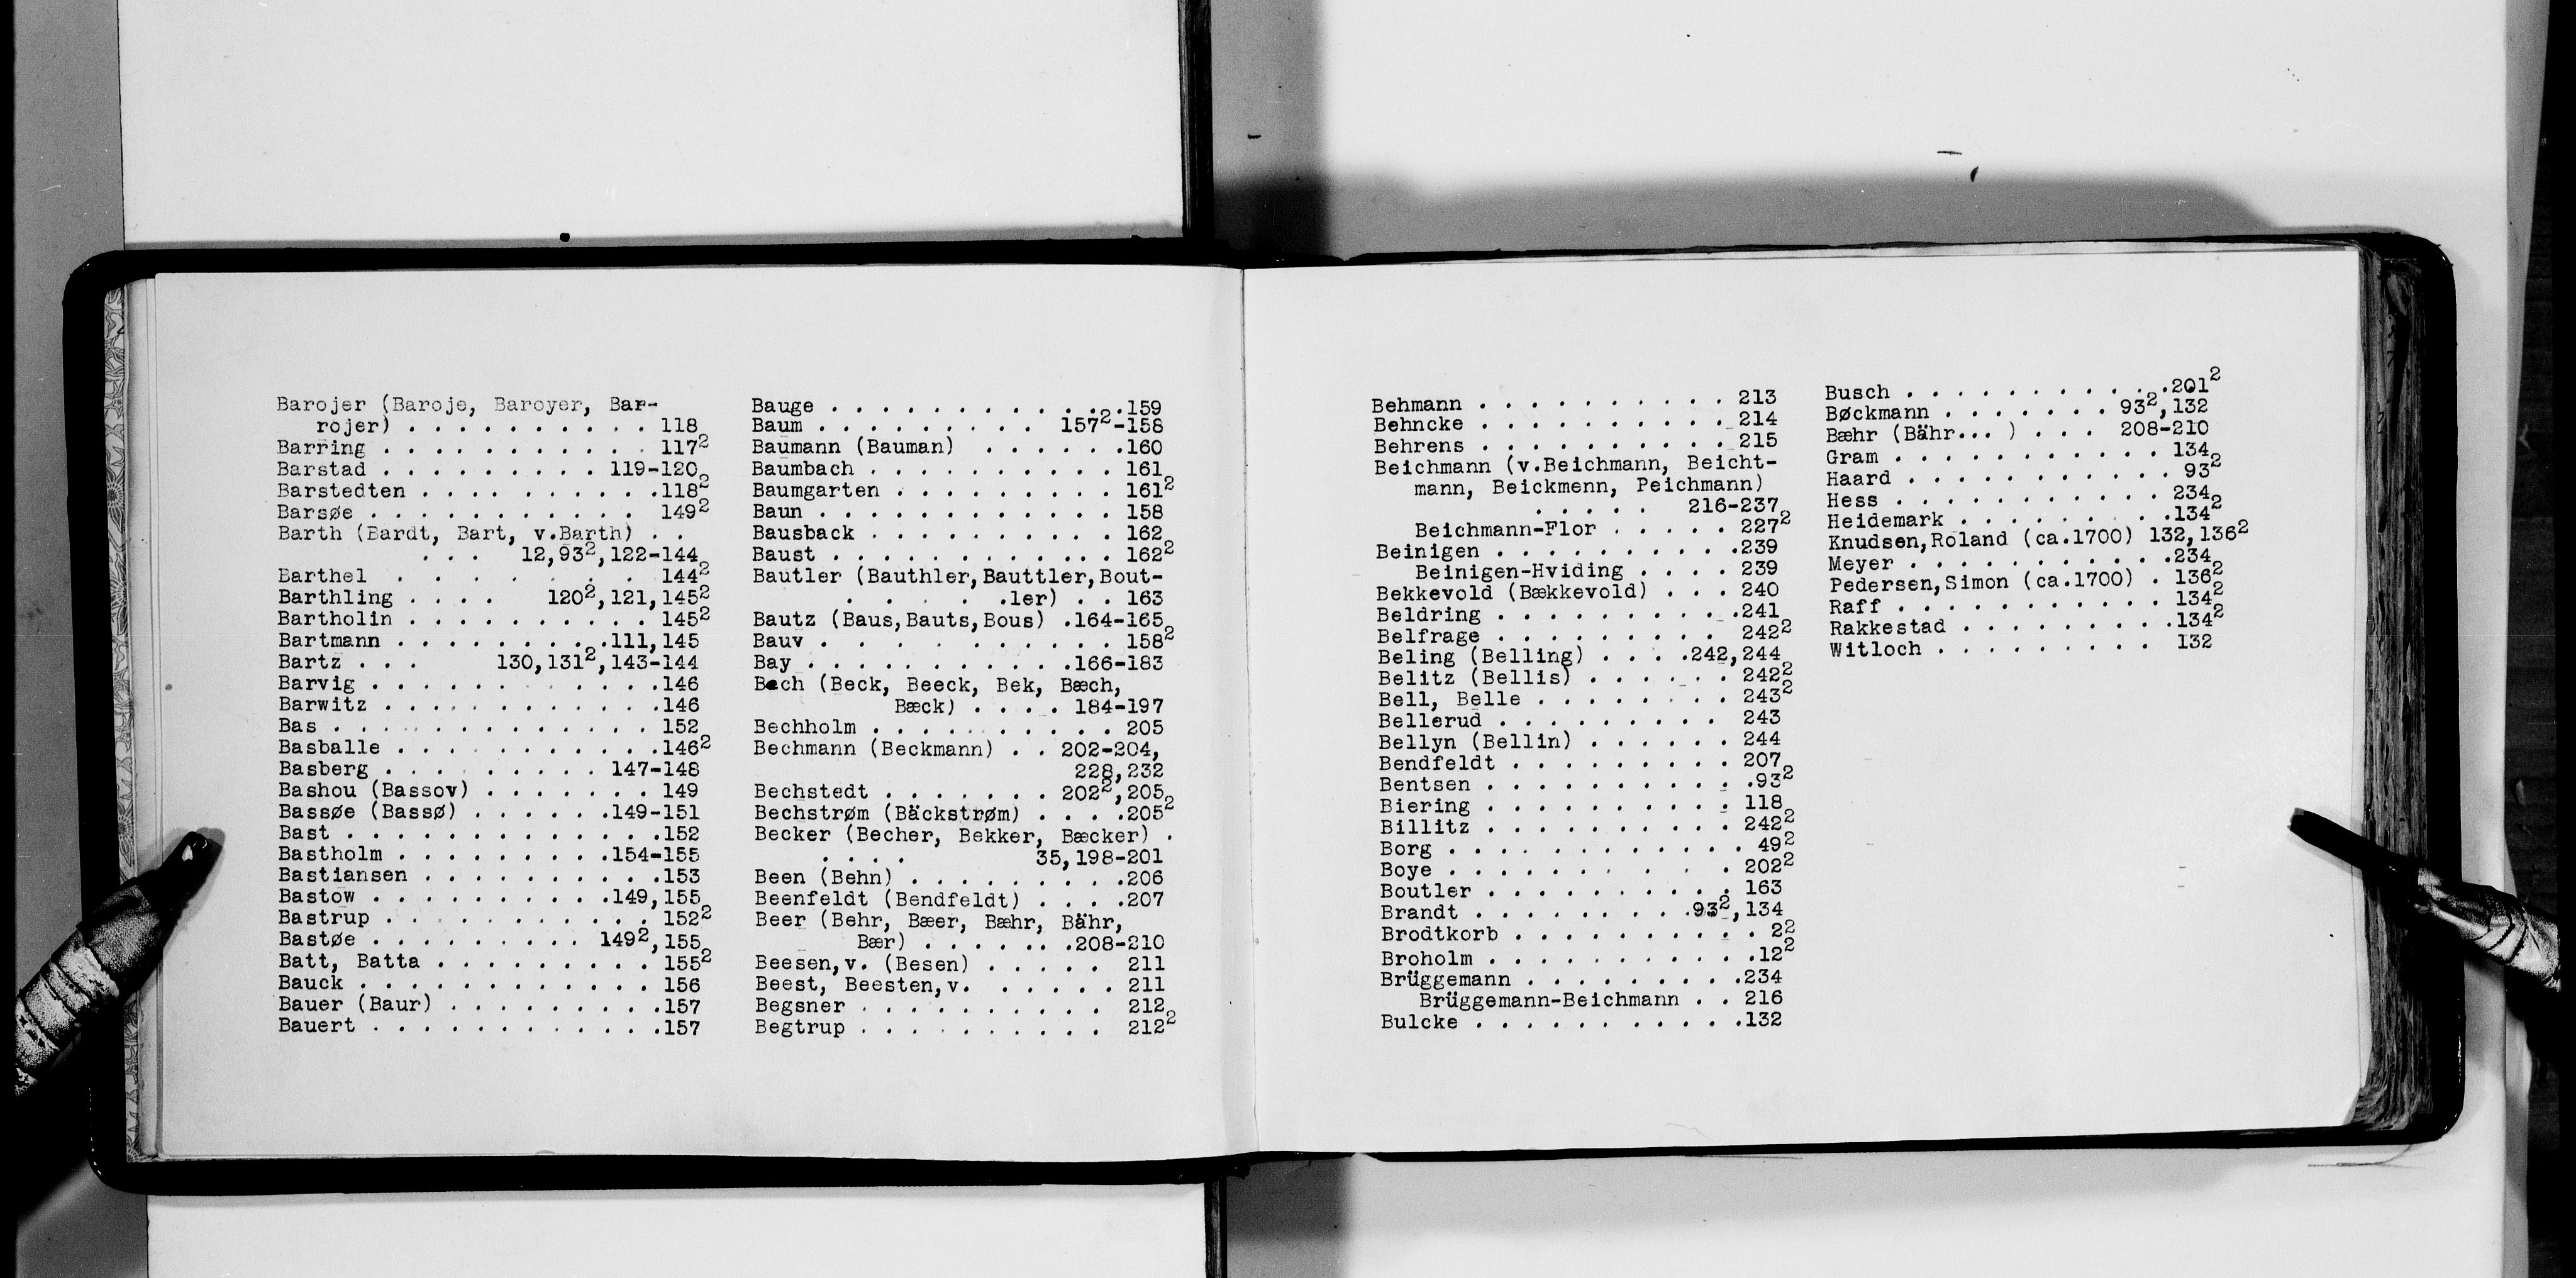 Barojer (Baroje, Baroyer, Bar-
rojer) . . . . . . . . . . 118
Barring . . . . . . . . . . . 117²
Barstad . . . . . . . . . . 119-120
Barstedten . . . . . . . . . .118²
Barsøe . . . . . . . . . . . 149²
Barth (Bardt, Bart, v.Barth) . .
. . . 12,93²,122-144
Barthel . . . . . . . . 144²
Barthling . . . . 120²,121,145²
Bartholin . . . . . . . . . . 145²
Bartmann . . . . . . . . . .111,145
Bartz . . . 130,131²,143-144
Barvig . . . . . . . . . . . .146
Barwitz . . . . . . . . . . . .146
Bas . . . . . . . . . . . . . 152
Basballe . . . . . . . . . . .146²
Basberg . . . . . . . . . 147-148
Bashou (Bassov) . . . . . . . 149
Bassøe (Bassø) . . . . . .149-151
Bast . . . . . . . . . . . . .152
Bastholm . . . . . . . . .154-155
Bastiansen . . . . . . . . . .153
Bastow . . . . . . . . . .149,155
Bastrup . . . . . . . . . . . 152²
Bastøe . . . . . . . . . 149²,155
Batt, Batta . . . . . . . . . 155²
Bauck . . . . . . . . . . . . 156
Bauer (Baur) . . . . . . . . .157
Bauert . . . . . . . . . . . .157
Bauge . . . . . . . . . . . . .159
Baum . . . . . . . . . 157²-158
Baumann (Bauman) . . . . . .160
Baumbach . . . . . . . . . . 161
Baumgarten . . . . . . . . . 161²
Baun . . . . . . . . . . . . 158
Bausback . . . . . . . . . . 162
Baust . . . . . . . . . . . . 162²
Bautler (Bauthler,Bauttler,Bout-
. . . . .ler) . . 163
Bautz (Baus,Bauts,Bous) .164-165
Bauv . . . . . . . . . . . . 158²
Bay . . . . . . . . . . .166-183
Bech (Beck, Beeck, Bek, Bæch,
Bæck) . . . . 184-197
Bechholm . . . . . . . . . . 205
Bechmann (Beckmann) . . 202-204,
228,232
Bechstedt . . . . . . . 202²,205
Bechstrøm (Bäckstrøm) . . . .205²
Becker (Becher, Bekker, Bæcker) .
. . . . 35,198-201
Been (Behn) . . . . . . . . .206
Beenfeldt (Bendfeldt) . . . .207
Beer (Behr, Bæer, Bæhr, Bähr,
Bær) . . . . . . .208-210
Beesen,v. (Besen) . . . . . 211
Beest, Beesten,v. . . . . . . 211
Begsner . . . . . . . . . . 212
Begtrup . . . . . . . . . . 212²
Behmann . . . . . . . . . . 213
Behncke . . . . . . . . . . 214
Behrens . . . . . . . . . . 215
Beichmann (v.Beichmann, Beicht-
mann, Beickmenn, Peichmann)
. . . . . 216-237
Beichmann-Flor . . . . . 227²
Beinigen . . . . . . . . . .239
Beinigen-Hviding . . . . 239
Bekkevold (Bækkevold) . . . 240
Beldring . . . . . . . . . .241
Belfrage . . . . . . . . . 242²
Beling (Belling) . . . .242,244
Belitz (Bellis) . . . . . . 242²
Bell, Belle . . . . . . . . 243²
Bellerud . . . . . . . . . 243
Bellyn (Bellin) . . . . . . 244
Bendfeldt . . . . . . . . . 207
Bentsen . . . . . . . . . . .93²
Biering . . . . . . . . . . 118
Billitz . . . . . . . . . . 242²
Borg . . . . . . . . . . . . 49²
Boye . . . . . . . . . . . 202²
Boutler . . . . . . . . . . 163
Brandt . . . . . . . . .93²,134
Brodtkorb . . . . . . . . . . 2²
Broholm . . . . . . . . . . .12²
Brüggemann . . . . . . . . .234
Brüggemann-Beichmann . . 216
Bulcke . . . . . . . . . . .132
Busch . . . . . . . . . . .201²
Bøckmann . . . . . . . 93²,132
Bæhr (Bähr... ) . . . 208-210
Gram . . . . . . . . . . . 134
Haard . . . . . . . . . . . 93²
Hess . . . . . . . . . . . 234
Heidemark . . . . . . . . .134²
Knudsen,Roland (ca.1700) 132,136²
Meyer . . . . . . . . . . .234
Pedersen,Simon (ca.1700) . 136²
Raff . . . . . . . . . . . 134²
Rakkestad . . . . . . . . .134²
Witloch . . . . . . . . . 132